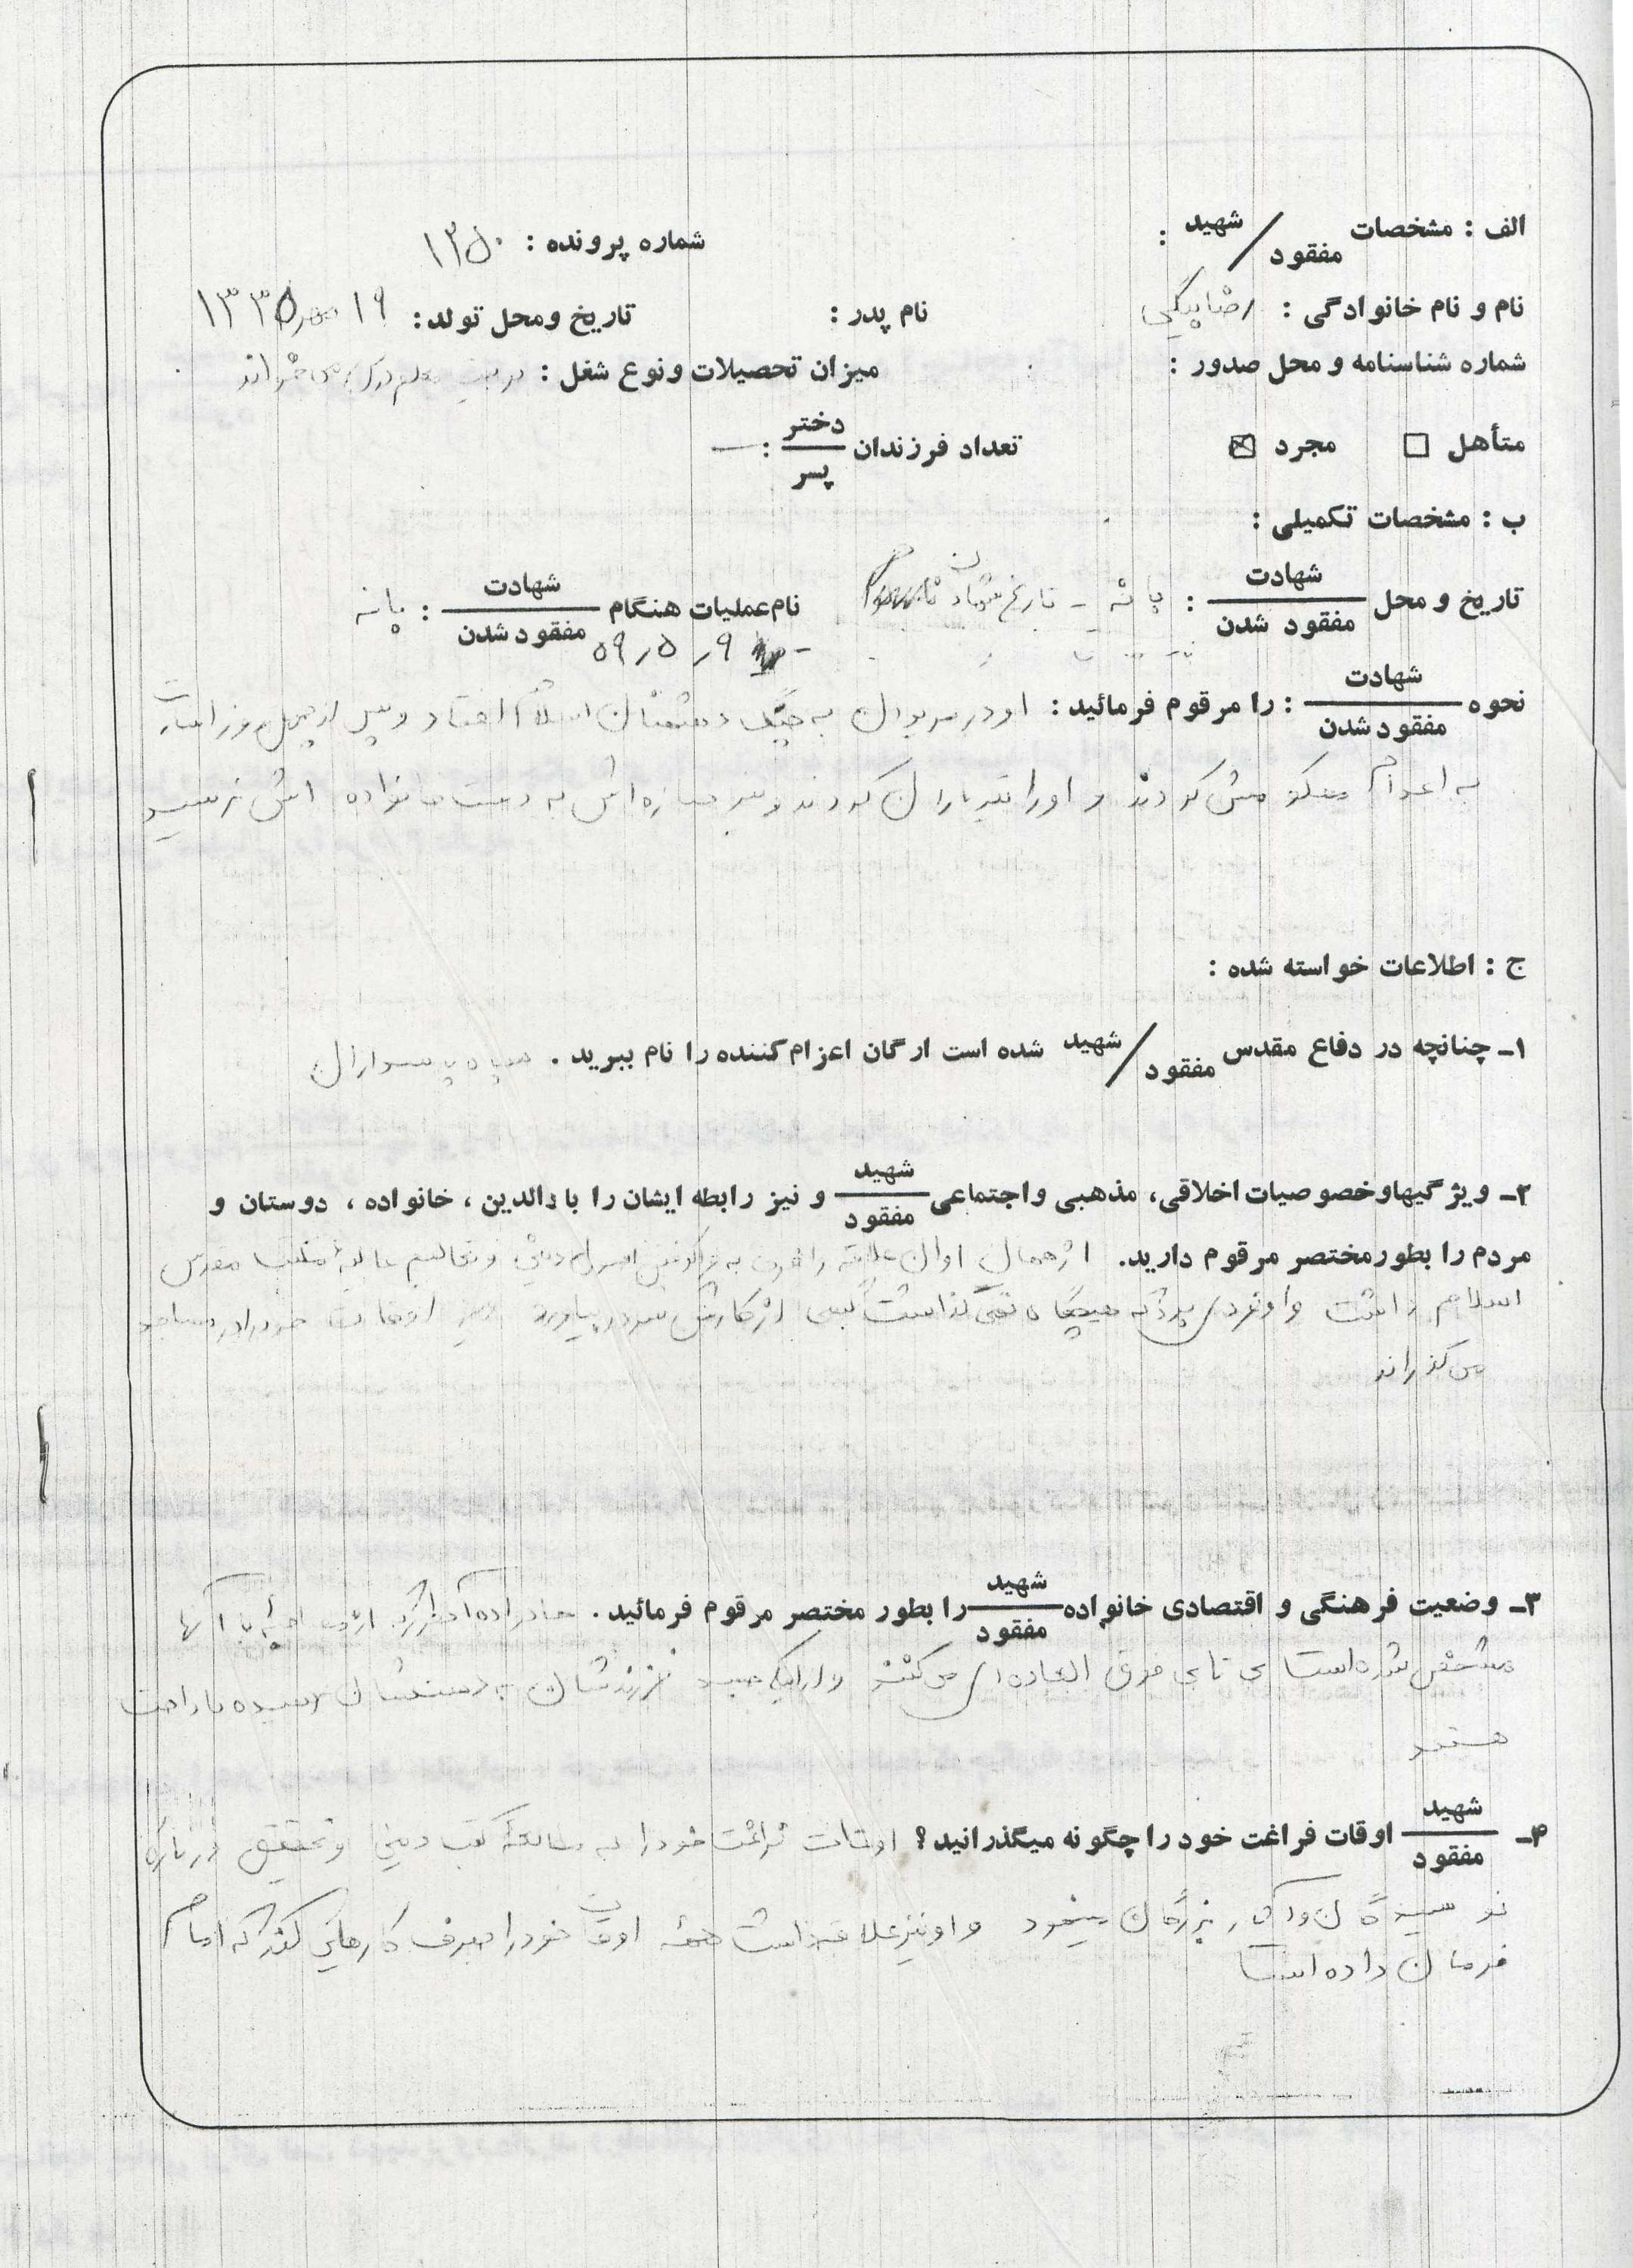 الف : مشخصات شهید / مفقود :
شماره پرونده : ۱۳۵۰
نام و نام خانوادگی : رضا بیگی
نام پدر :
تاریخ و محل تولد : ۱۹ صفر ۱۳۳۵
شماره شناسنامه و محل صدور :
میزان تحصیلات و نوع شغل : تربیت معلم درس می خواند
متأهل ☐ مجرد ☒
تعداد فرزندان دختر / پسر : —
ب : مشخصات تکمیلی :
تاریخ و محل شهادت / مفقود شدن : بانه - تاریخ شهادت
نام عملیات هنگام شهادت / مفقود شدن : بانه
۵۹/۵/۹ -
نحوه شهادت / مفقود شدن : را مرقوم فرمائید : او در مریوان به چنگ دشمنان اسلام افتاد و پس از چهل روز اسارت
به اعدام محکومش کردند و او را تیرباران کردند و نیز جنازه اش به دست خانواده اش نرسید
ج : اطلاعات خواسته شده :
۱- چنانچه در دفاع مقدس شهید / مفقود شده است ارگان اعزام کننده را نام ببرید . سپاه پاسداران
۲- ویژگیها و خصوصیات اخلاقی، مذهبی و اجتماعی شهید / مفقود و نیز رابطه ایشان را با والدین ، خانواده ، دوستان و
مردم را بطور مختصر مرقوم دارید. از همان اوان علاقه به فراگرفتن اصول دینی و تعالیم عالیهٔ مکتب مقدس
اسلام داشت و او فردی بود که هیچگاه نمی گذاشت کسی از کارش سر در بیاورد اوقات خود را در مساجد
می گذراند
۳- وضعیت فرهنگی و اقتصادی خانواده شهید / مفقود را بطور مختصر مرقوم فرمائید . خانواده از آنها
مشخص شده است بی تابی فوق العاده ای می کنند و از اینکه جسد فرزندشان به دستشان نرسیده ناراحت
هستند
۴- شهید / مفقود اوقات فراغت خود را چگونه میگذرانید؟ اوقات فراغت خود را به مطالعهٔ کتب دینی و تحقیق درباره
نویسندگان و آثار بزرگان مینمود و او نیز علاقه داشت همهٔ اوقات خود را صرف کارهایی کند که امام
فرمان داده است